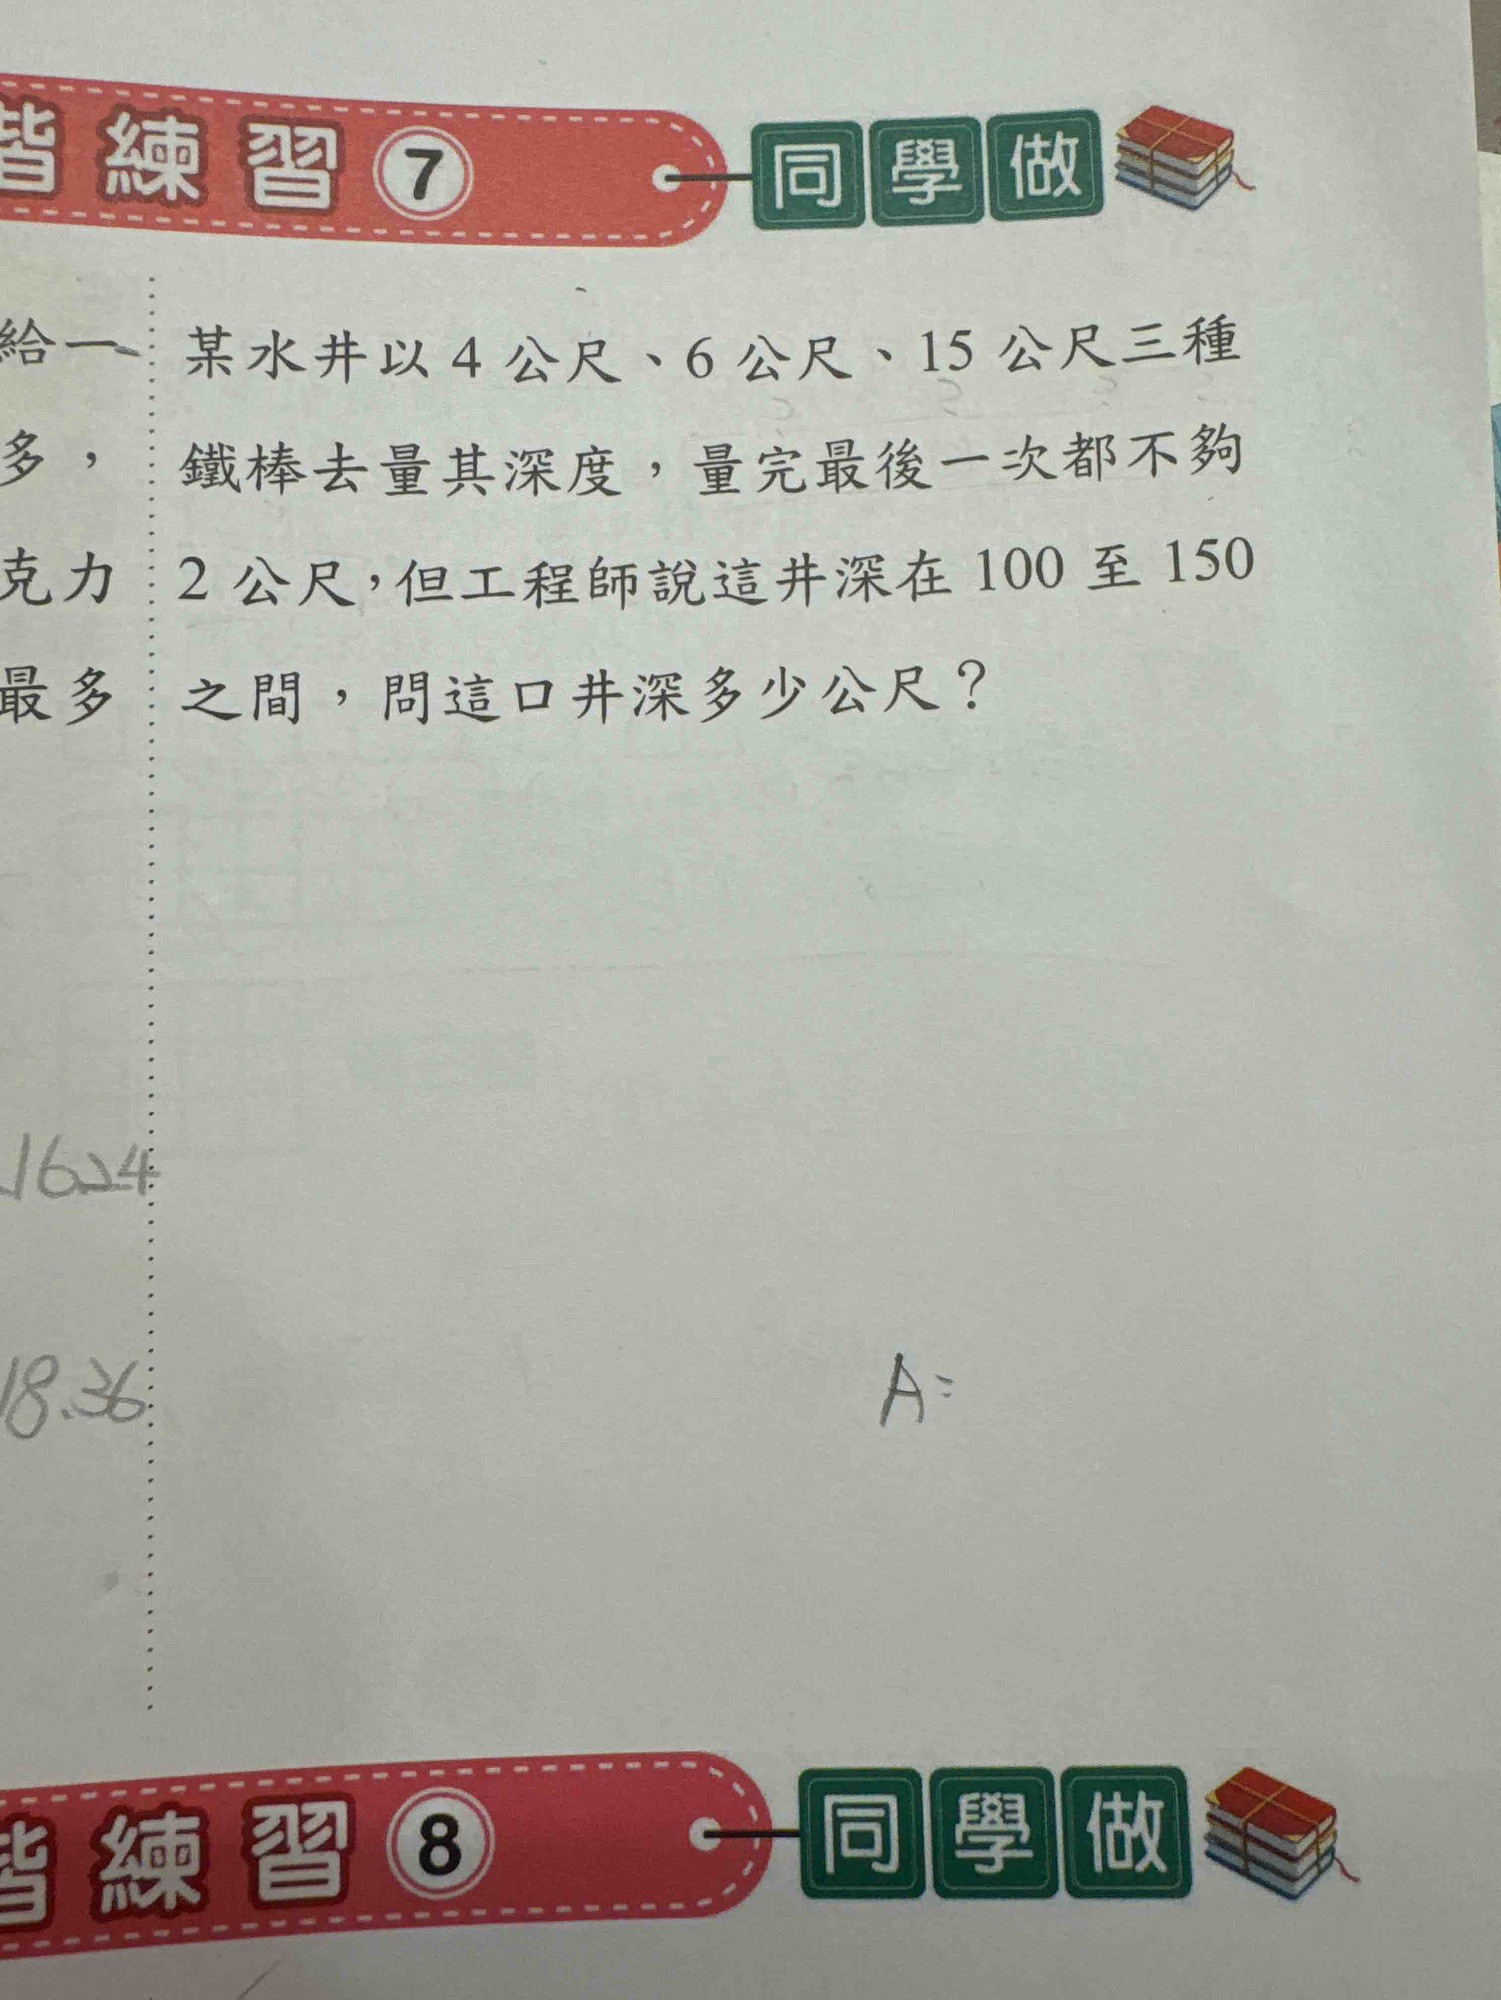 皆練習7
同學做
給一
多，
克力
最多
某水井以4公尺、6公尺、15公尺三種
鐵棒去量其深度，量完最後一次都不夠
2公尺，但工程師說這井深在100至150
之間，問這口井深多少公尺？
16.24
18.36
A=
皆練習8
同學做